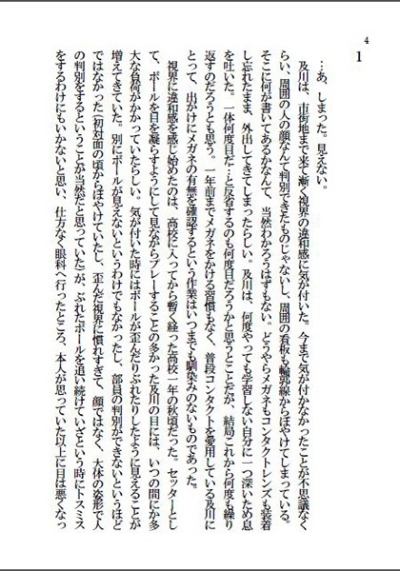 4
1
…あ、しまった。見えない。
及川は、市街地まで来て漸く視界の違和感に気が付いた。今まで気が付かなかったことが不思議なく
らい、周囲の人の顔なんて判別できたものじゃないし、周囲の看板も輪郭線からぼやけてしまっている。
そこに何が書いてあるかなんて、当然わかろうはずもない。どうやらメガネもコンタクトレンズも装着
し忘れたまま、外出してきてしまったらしい。及川は、何度やっても学習しない自分に一つ深いため息
を吐いた。一体何度目だ…と反省するのも何度目だろうかと思うとことだが、結局これから何度も繰り
返すのだろうとも思う。一年前までメガネをかける習慣もなく、普段コンタクトを愛用している及川に
とって、出がけにメガネの有無を確認するという作業はいつまでも馴染みのないものであった。
視界に違和感を感じ始めたのは、高校に入ってから暫く経った高校一年の秋頃だった。セッターとし
て、ボールを目を凝らすようにして見ながらプレーすることの多かった及川の目には、いつの間にか多
大な負荷がかかっていたらしい。気が付いた時にはボールが歪んだりぶれたりしたように見えることが
増えてきていた。別にボールが見えないというわけでもなかったし、部員の判別ができないというほど
ではなかった(初対面の頃からぼやけていたし、歪んだ視界に慣れすぎて、顔ではなく、大体の姿形で人
の判別をするということが当然だと思っていた)が、ぶれたボールを追い続けていざという時にトスミス
をするわけにもいかないと思い、仕方なく眼科へ行ったところ、本人が思っていた以上に目は悪くなっ